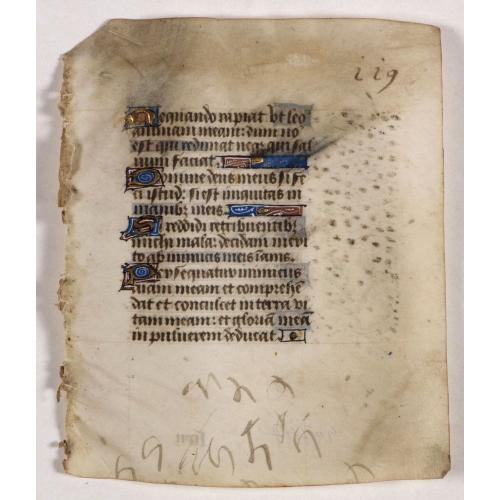 119
Nequando rapiat vt leo
animam meam: dum no
est qui redimat neqz qui sal
uum faciat.
Domine deus meus si fe
ci istud: si est iniquitas in
manibz meis.
Si reddidi retribuentibz
michi mala: decidam meri
to ab inimicis meis inanis.
Persequatur inimicus
aīam meam et comprehē
dat et conculcet in terra vi
tam meam: et gloriā meā
in puluerem deducat.